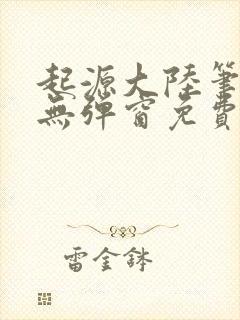 起源大陸筆
無彈窗免費
雷金缽